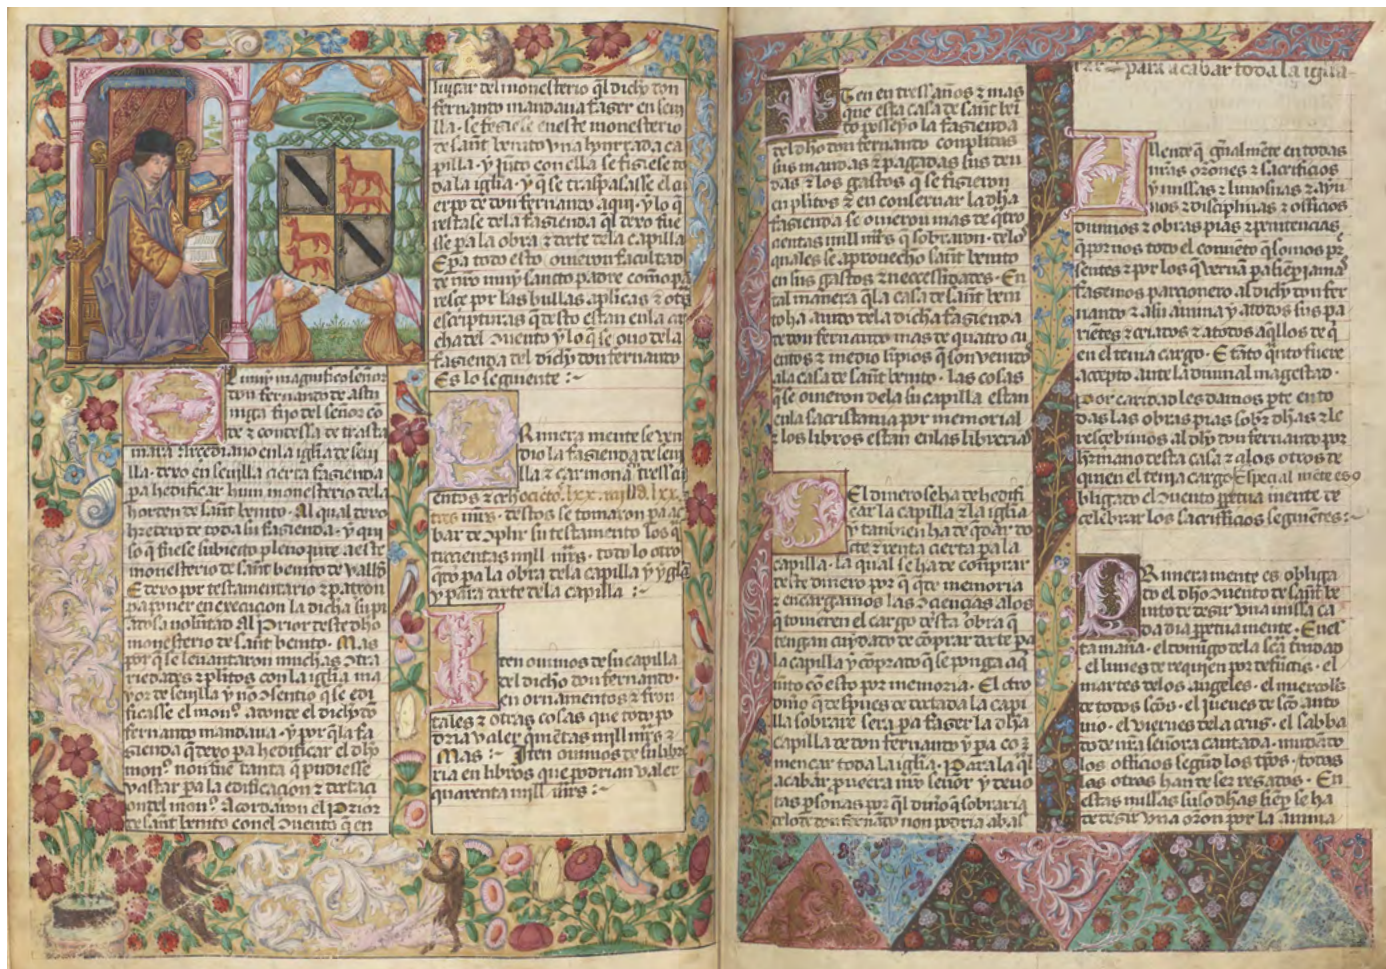 El muy magnifico señor
don fernando de astu
niga fijo del señor co
de z contessa de trasta
mara Arcediano en la iglia de seui
lla. dexo en seuilla cierta fasienda
pa hedificar hun monesterio de la
horden de sant benito. Al qual dexo
heredero de toda su fasienda. y qui
so q fuese subiecto pleno jure a este
monesterio de sant benito de vallid
E dexo por testamentario z patron
pa poner en execucion la dicha su pi
adosa voluntad Al Prior deste dho
monesterio de sant benito. Mas
por q se leuantaron muchas otra
riedades z plitos con la iglia ma
yor de seuilla y no osentio q se edi
ficasse el mon? adonde el dicho do
fernando mandaua. y por q la fa
sienda q dexo pa hedificar el dho
mon? non fue tanta q pudiesse
vastar pa la edificacion z dotaci
on del mon? Acordaron el Prior
de sant benito con el ouento q en
lugar del monesterio ql dicho don
fernando mandaua faser en seui
lla. se fesiese en este monesterio
de sant benito vna honrrada ca
pilla. y junto con ella se fisiese to
da la iglia. y q se traspasasse el cu
erpo de don fernando aqui. y lo q
restase de la fasienda ql dexo fue
sse pa la obra z dote de la capilla
E pa todo esto ouieron facultad
de nro muy santo padre como pa
resce por las bullas aplicas z otras
escripturas q desto estan en la ar
cha del ouento y lo q se ouo de la
fasienda del dicho don fernando
Es lo seguiente :~
Primera mente se ven
dio la fasienda de seui
lla z carmona tressci
entos z ocho
tres mrs. destos se tomaron pa ac
bar de oplir su testamento los q
trecientas mill mrs. todo lo otro
qdo pa la obra de la capilla y yglia
y para dote de la capilla :~
Iten ouimos de su capilla
del dicho don fernando.
en ornamentos z fron
tales z otras cosas que todo po
dria valer quietas mill mrs z
Mas :~ Iten ouimos de su libre
ria en libros que podrian valer
quarenta mill mrs :~
Iten en tres años z mas
que esta casa de sant beni
to posseyo la fasienda
del dho don fernando conplidas
sus mandas z pagadas sus deu
das z los gastos q se fisieron
en plitos z en conseruar la dha
fasienda se ouieron mas de qtro
cientas mill mrs q sobraron. de los
quales se aprouecho sant benito
en sus gastos z necessidades. En
tal manera q la casa de sant beni
to ha auido de la dicha fasienda
de don fernando mas de quatro cu
entos z medio lipios q son venido
a la casa de sant benito. las cosas
q se ouieron de la su capilla estan
en la sacristania por memorial
z los libros estan en las librerias
El dinero se ha de hedifi
car la capilla z la iglia
y tanbien ha de qdar do
te z renta cierta pa la
capilla. la qual se ha de comprar
deste dinero por q qde memoria
z encargamos las ociencias a los
q touieren el cargo desta obra q
tengan cuydado de comprar dote pa
la capilla y coprado q se ponga aq
junto co esto por memoria. El otro
dino q despues de dotada la capi
lla sobrare sera pa faser la dha
capilla de don fernando y pa co
mencar toda la iglia. Para la ql
acabar proueera nro señor y deuo
tas psonas por ql dino q sobraria
de lo de don fernado non podria abas
tar para acabar toda la iglia
llente q egualmete en todas
nras oriones z sacrificios
y missas z limosnas z ayu
nos z disciplinas z officios
diuinos z obras pias z penitencias
q por nos todo el conueto q somos pre
sentes z por los q verna pa siepre jamas
fasemos parcionero al dicho don fer
nando z a su anima y a todos sus pa
rietes z criados z a todos aqllos de q
en el tenia cargo. E tato qnto fuere
accepto ante la diuinal magestad.
por caridad les damos pte en to
das las obras pias sobre dhas z le
rescebimos al dho don fernando por
hermano desta casa z a los otros de
quien el tenia cargo. Especial mete es o
bligado el ouento ppetua mente de
celebrar los sacrificios seguietes :~
Primera mente es obliga
do el dho ouento de sant be
nito de desir vna missa ca
da dia ppetua mente. En es
ta mana. el domigo de la sca trinidad
. el lunes de requien por defuctis. el
martes de los angeles. el miercoles
de todos scos. el jueues de sco anto
nio. el viernes de la crus. el sabba
do de nra señora cantada. mudado
los officios segud los tpos. todas
las otras han de ser resadas. En
estas missas suso dhas siep se ha
de desir vna orion por la anima